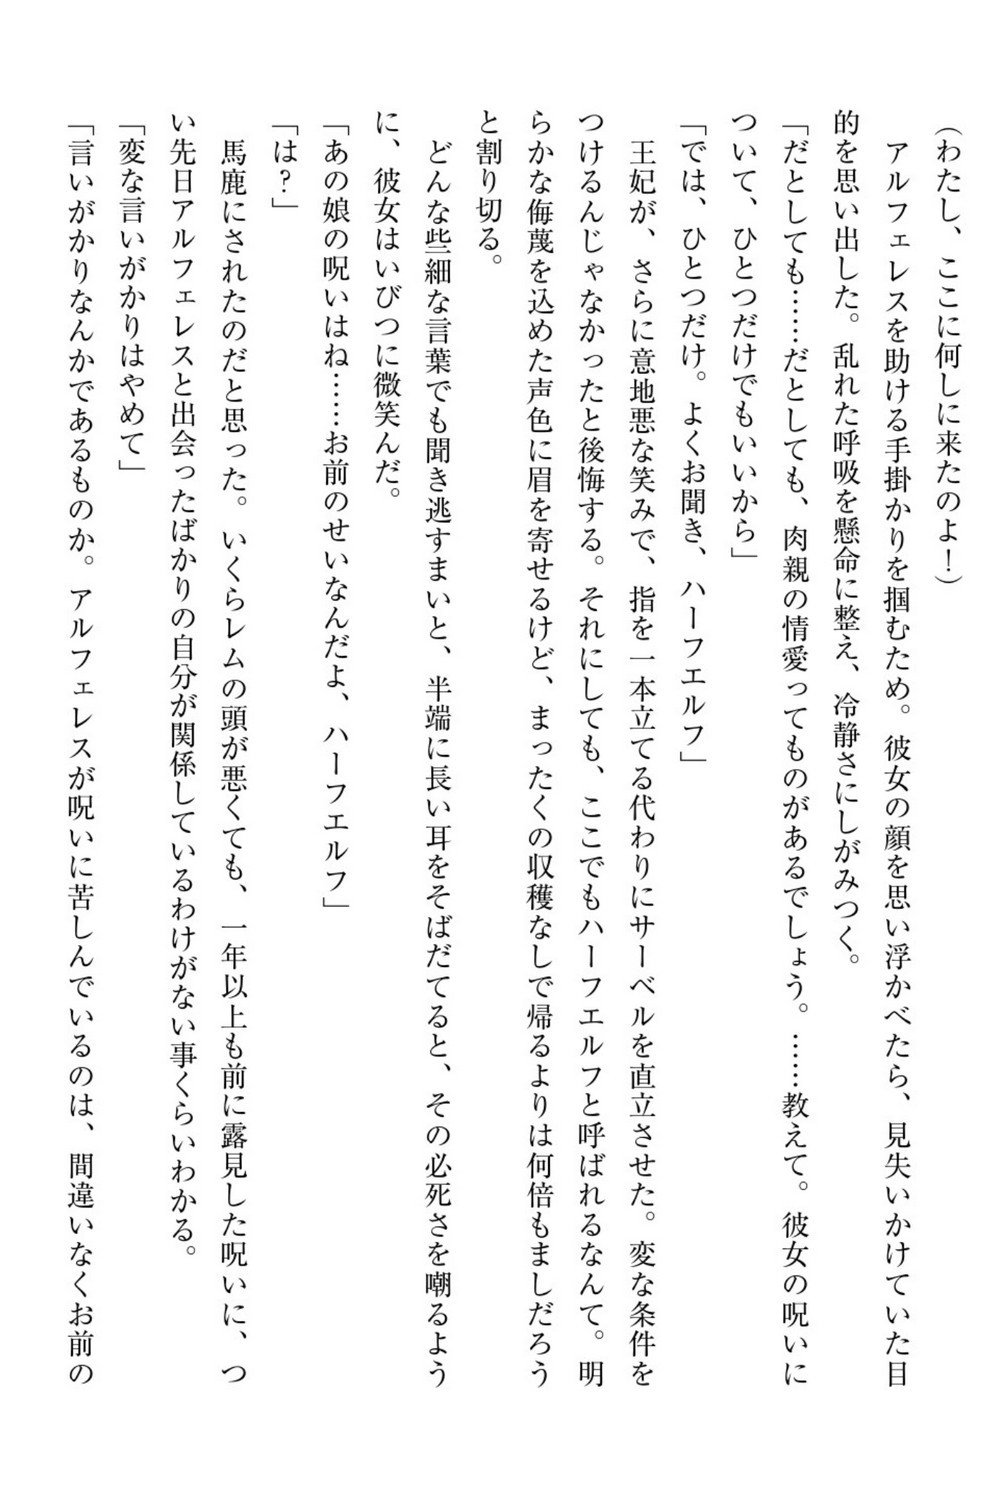 (わたし、ここに何しに来たのよ！)
　アルフェレスを助ける手掛かりを掴むため。彼女の顔を思い浮かべたら、見失いかけていた目
的を思い出した。乱れた呼吸を懸命に整え、冷静さにしがみつく。
「だとしても……だとしても、肉親の情愛ってものがあるでしょう。……教えて。彼女の呪いに
ついて、ひとつだけでもいいから」
「では、ひとつだけ。よくお聞き、ハーフエルフ」
　王妃が、さらに意地悪な笑みで、指を一本立てる代わりにサーベルを直立させた。変な条件を
つけるんじゃなかったと後悔する。それにしても、ここでもハーフエルフと呼ばれるなんて。明
らかな侮蔑を込めた声色に眉を寄せるけど、まったくの収穫なしで帰るよりは何倍もましだろう
と割り切る。
　どんな些細な言葉でも聞き逃すまいと、半端に長い耳をそばだてると、その必死さを嘲るよう
に、彼女はいびつに微笑んだ。
「あの娘の呪いはね……お前のせいなんだよ、ハーフエルフ」
「は？」
　馬鹿にされたのだと思った。いくらレムの頭が悪くても、一年以上も前に露見した呪いに、つ
い先日アルフェレスと出会ったばかりの自分が関係しているわけがない事くらいわかる。
「変な言いがかりはやめて」
「言いがかりなんかであるものか。アルフェレスが呪いに苦しんでいるのは、間違いなくお前の